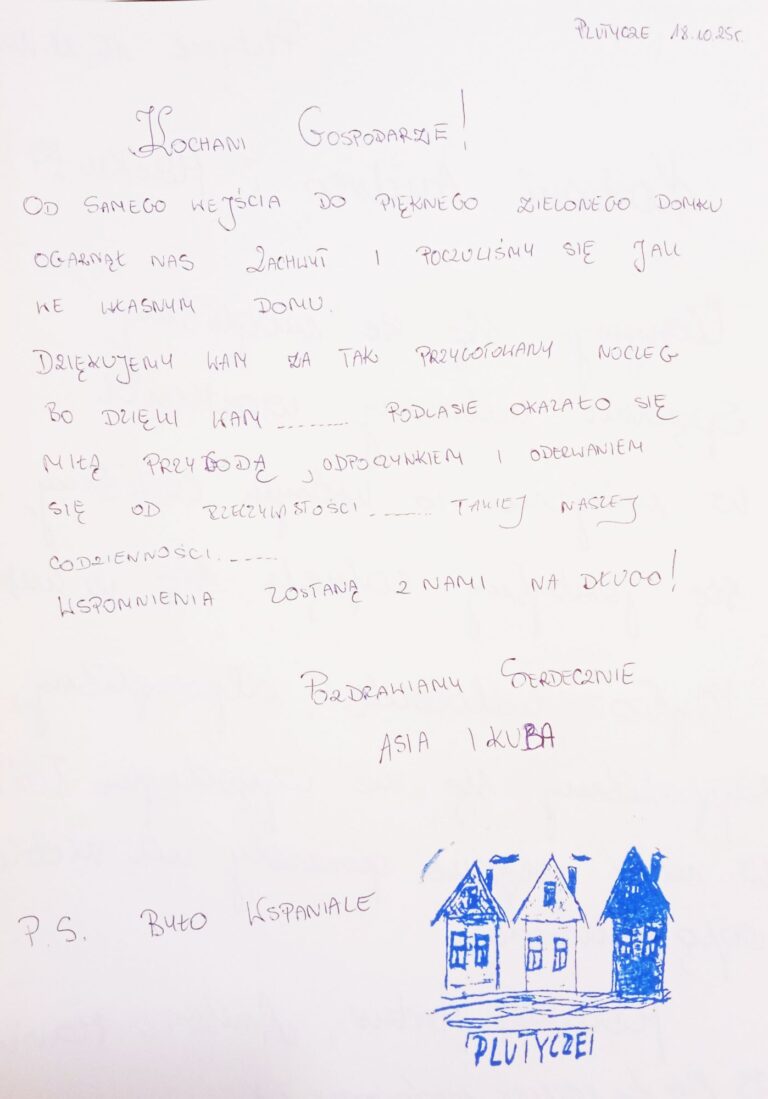 PLUTYCZE 18.10.25r.
KOCHANI GOSPODARZE!
OD SAMEGO WEJŚCIA DO PIĘKNEGO ZIELONEGO DOMKU
OGARNĄŁ NAS ZACHWYT I POCZULIŚMY SIĘ JAK
WE WŁASNYM DOMU.
DZIĘKUJEMY WAM ZA TAK PRZYGOTOWANY NOCLEG
BO DZIĘKI WAM ......... PODLASIE OKAZAŁO SIĘ
MIŁĄ PRZYGODĄ, ODPOCZYNKIEM I ODERWANIEM
SIĘ OD RZECZYWISTOŚCI ........ TAKIEJ NASZEJ
CODZIENNOŚCI ......
WSPOMNIENIA ZOSTANĄ Z NAMI NA DŁUGO!
POZDRAWIAMY SERDECZNIE
ASIA I KUBA
P.S. BYŁO WSPANIALE
PLUTYCZE